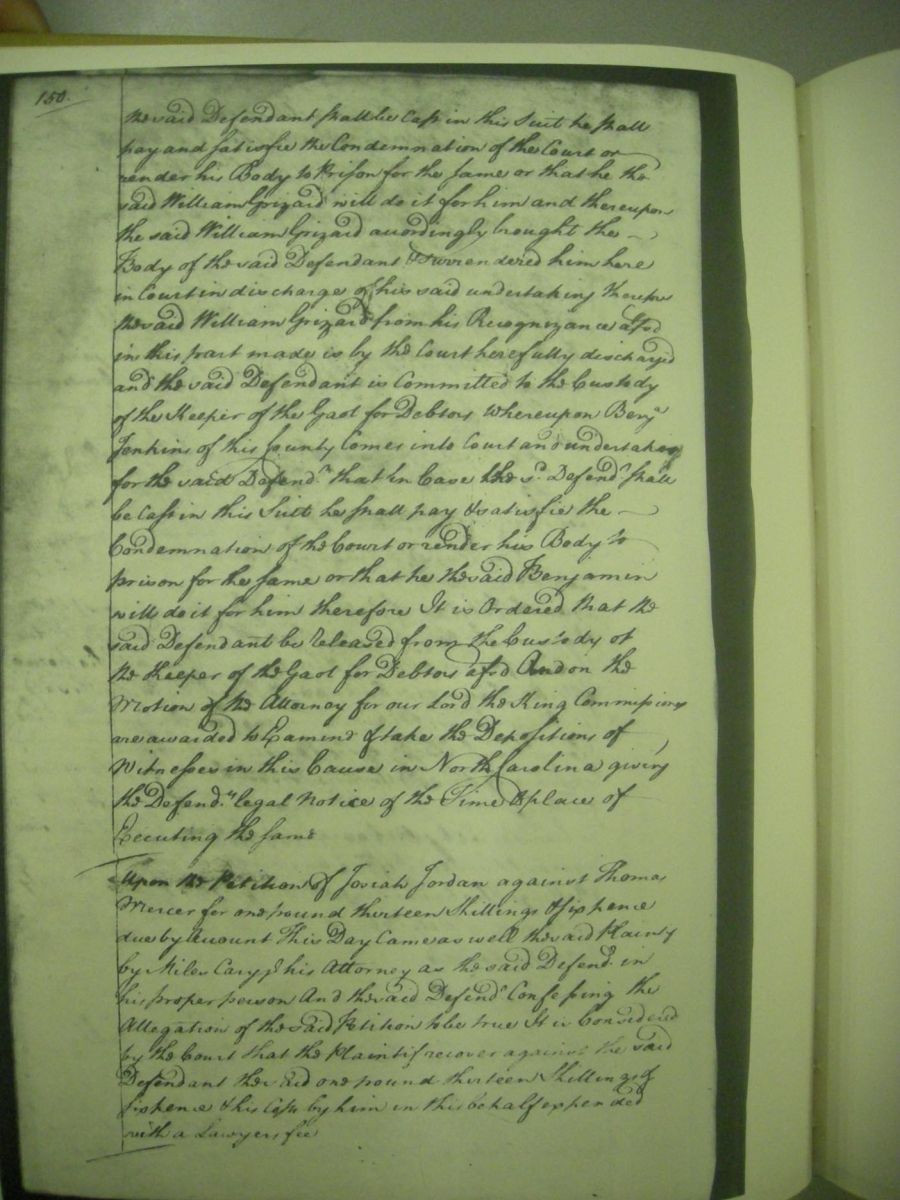 150.
the said Defendant shall be Cast in this Suit he shall
pay and satisfie the Condemnation of the Court or
render his Body to Prison for the same or that he the
said William Grizard will do it for him and thereupon
the said William Grizard accordingly brought the
Body of the said Defendant & surrendered him here
in Court in discharge of his said undertaking
the said William Grizard from his Recognizance afsd
in this part made is by the Court here fully discharged
and the said Defendant is Committed to the Custody
of the Keeper of the Gaol for Debtors Whereupon Benja
Jenkins of this County Comes into Court and undertakes
for the said Defendt. that in Case the sd. Defendt shall
be Cast in this Suit he shall pay & satisfie the
Condemnation of the Court or render his Body to
prison for the same or that he the said Benjamin
will do it for him therefore It is Ordered that the
said Defendant be released from the Custody of
the Keeper of the Gaol for Debtors afsd And on the
Motion of the Attorney for our Lord the King Commissions
are awarded to Examine & take the Depositions of
Witnesses in this Cause in North Carolina giving
the Defendt. legal Notice of the Time & place of
Executing the same
Upon the Petition of Josiah Jordan against Thomas
Mercer for one pound thirteen Shillings & sixpence
due by Account This Day Came as well the said Plaintif
by Miles Cary his Attorney as the said Defendt. in
his proper person And the said Defendt Confessing the
Allegation of the said Petition to be true It is Considered
by the Court that the Plaintif recover against the said
Defendant the said one pound thirteen Shillings &
sixpence & his Costs by him in this behalf expended
with a Lawyers fee